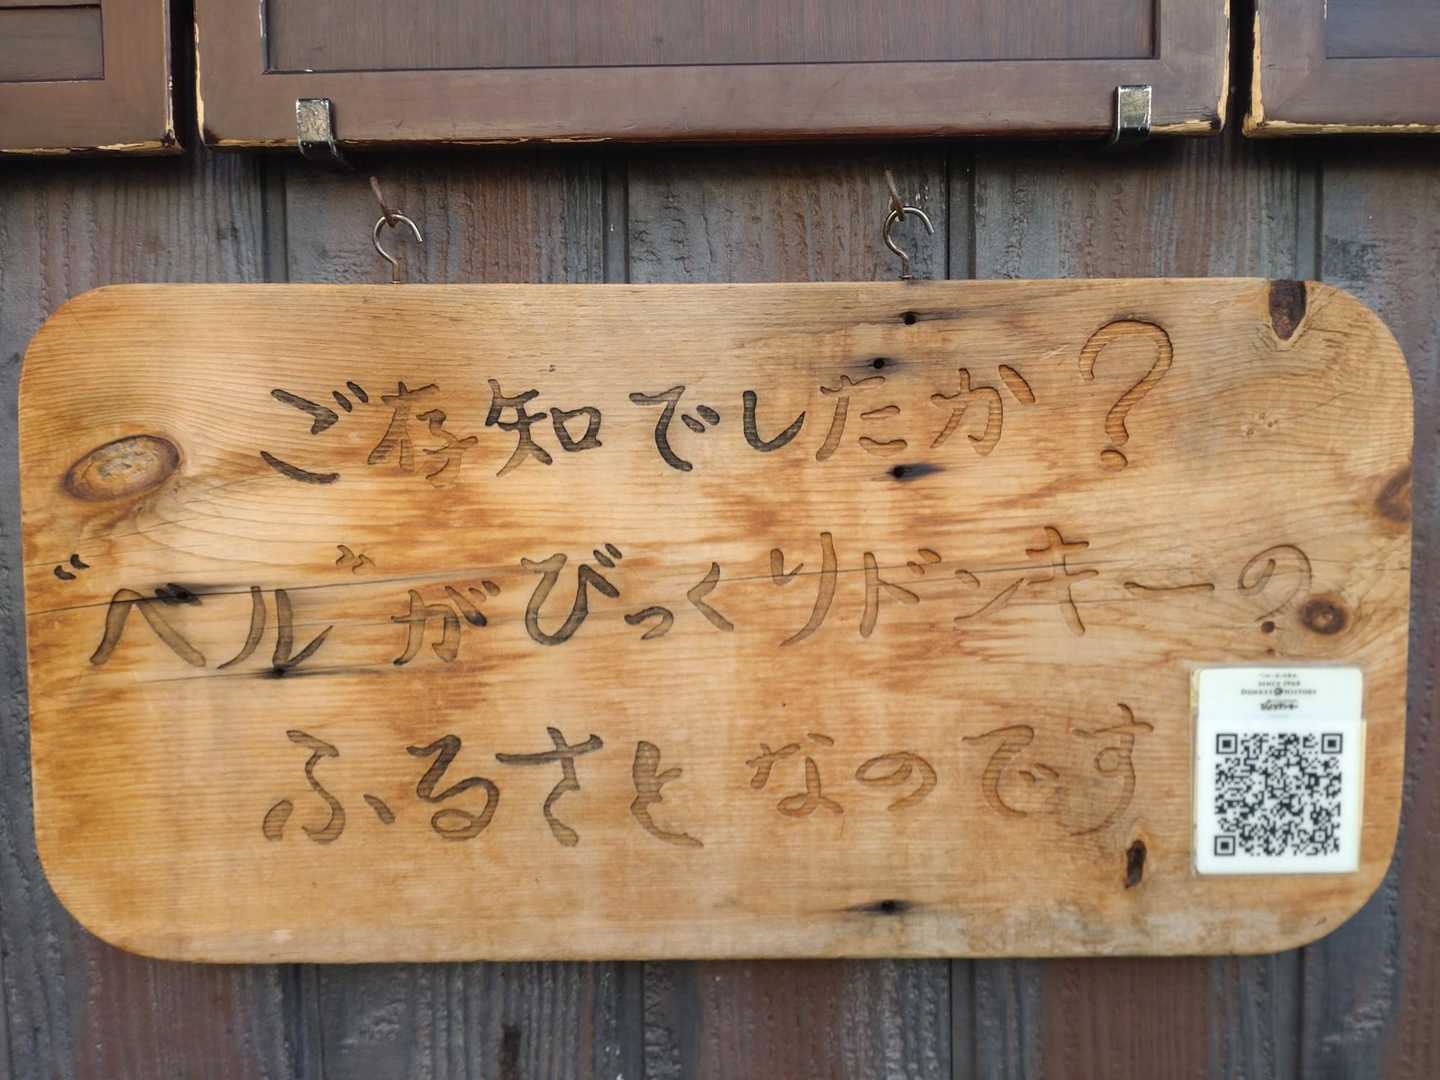 ご存知でしたか?
"ベル"がびっくりドンキーの
ふるさとなのです
SINCE 1968
DONKEY HISTORY
びっくりドンキー